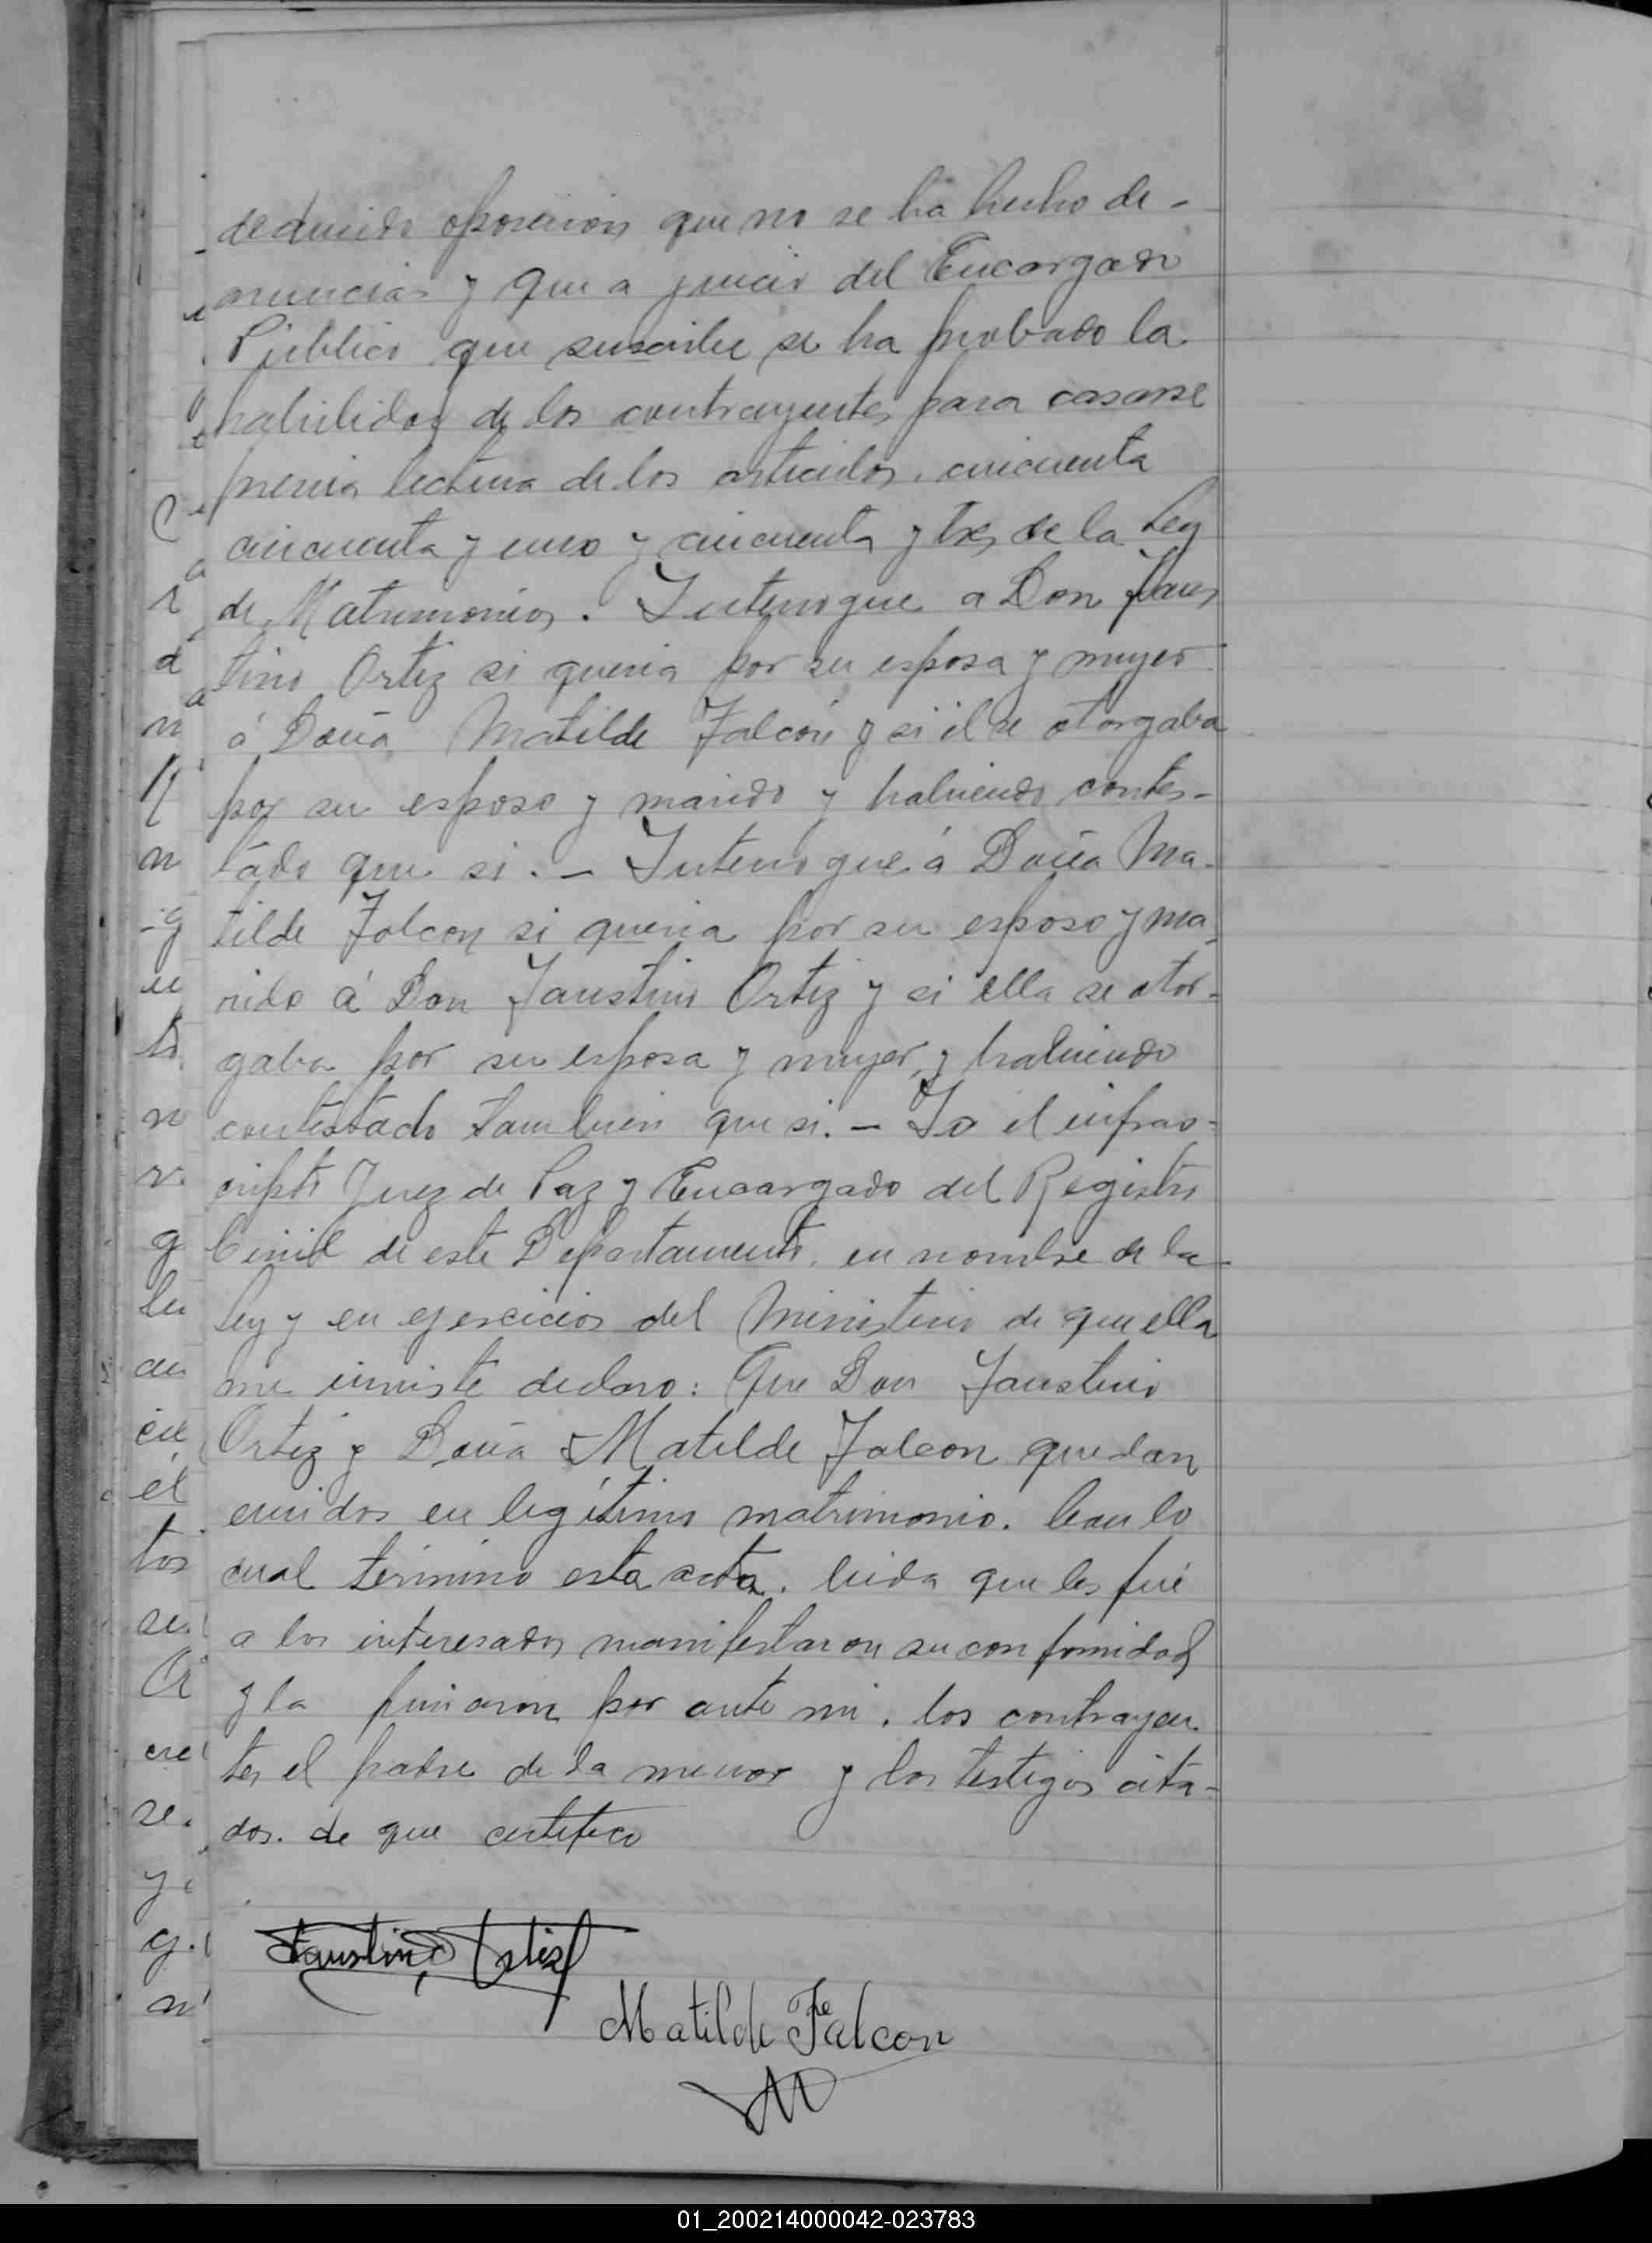 deducido oposicion que no se ha hecho de-
nuncias y que a juicio del Encargado
Público que suscribe se ha probado la
habilidad de los contrayentes para casarse
previa lectura de los articulos. cincuenta
cincuenta y uno y cincuenta y tres de la Ley
de Matrimonios. Interrogue a Don Faus
tino Ortiz si queria por su esposa y mujer
á Doña Matilde Falcón y si él se otorgaba
por su esposo y marido y habiendo contes-
tado que si. — Interrogue á Doña Ma-
tilde Falcon si queria por su esposo y ma
rido á Don Faustino Ortiz y si ella se otor-
gaba por su esposa y mujer, y habiendo
contestado tambien que si. — Yo el infras-
cripto Juez de Paz y Encargado del Registro
Civil de este Departamento. en nombre de la
Ley y en ejercicios del Ministerio de que ella
me inviste declaro: Que Don Faustino
Ortiz y Doña Matilde Falcon quedan
unidos en legítimo matrimonio. Con lo
cual términó esta acta. leida que les fué
a los interesados manifestaron su conformidad
y la firmaron por ante mi. los contrayen
tes el padre de la menor y los testigos cita-
dos. de que certifico
Faustino Ortiz
Matilde Falcon
01_200214000042-023783